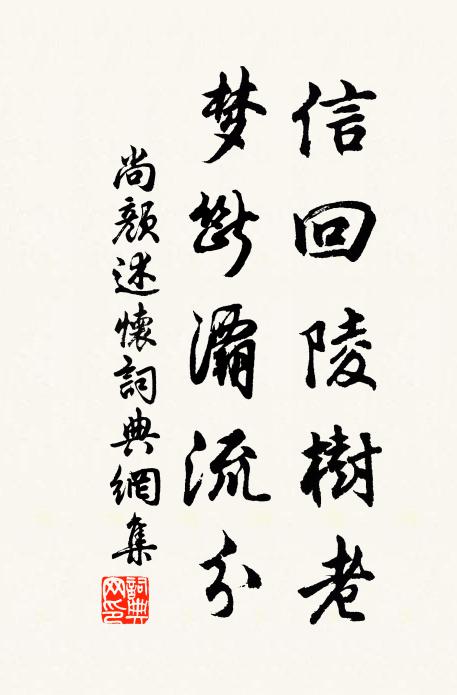 信回陵樹老
梦斷灞流分
尚顏述懷詞典網集
詞典网印